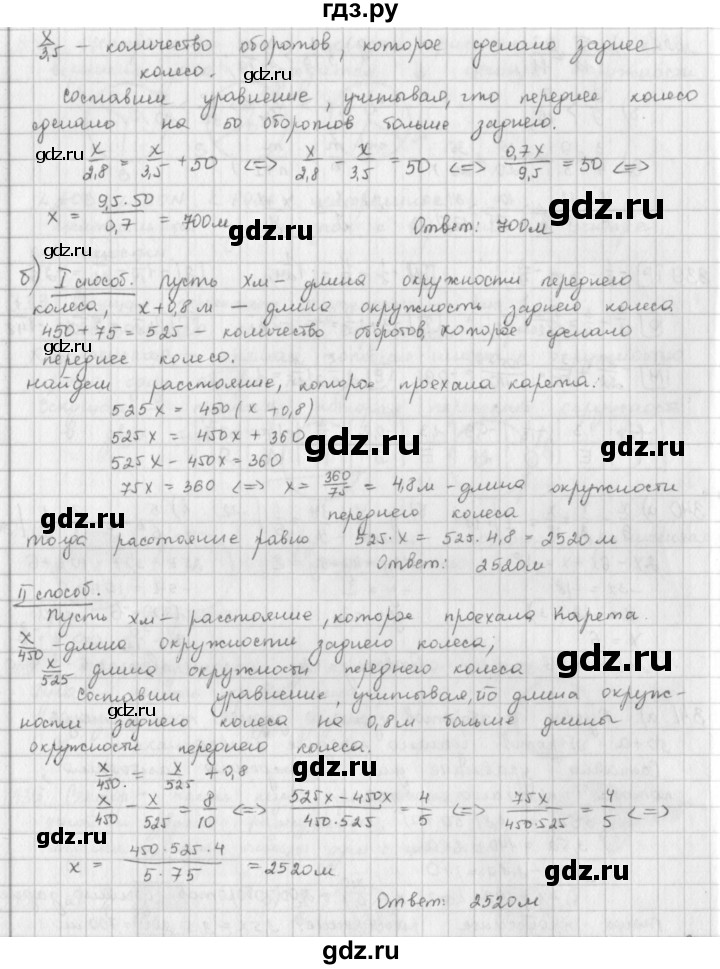 гдз.ру
x/3,5 – количество оборотов, которое сделало заднее
колесо. gdz.ru gdz.ru
Составим уравнение, учитывая, что переднее колесо
сделало на 50 оборотов больше заднего.
gdz.ru x/2,8 = x/3,5 + 50 <=> x/2,8 – x/3,5 = 50 <=> 0,7x/9,5 = 50 <=>
x = 9,5·50/0,7 = 700м gdz.ru
gdz.ru Ответ: 700м
б) I способ. Пусть xм – длина окружности переднего
колеса, x+0,8м – длина окружность заднего колеса
450+75 = 525 – количество оборотов, которое сделало
gdz.ru gdz.ru
переднее колесо.
найдем расстояние, которое проехала карета:
525x = 450(x+0,8)
525x = 450x + 360 gdz.ru gdz.ru
525x – 450x = 360
75x = 360 <=> x = 360/75 = 4,8м – длина окружности
переднего колеса
gdz.ru
Тогда расстояние равно 525·x = 525·4,8 = 2520м
Ответ: 2520м
gdz.ru
II способ.
Пусть xм – расстояние, которое проехала карета.
x/450 – длина окружности заднего колеса;
gdz.ru
x/525 длина окружности переднего колеса
Составим уравнение, учитывая, что длина окруж-
gdz.ru
ности заднего колеса на 0,8м больше длины
окружности переднего колеса.
x/450 = x/525 + 0,8 gdz.ru gdz.ru
x/450 – x/525 = 8/10 <=> 525x – 450x/450·525 = 4/5 <=> 75x/450·525 = 4/5 <=>
gdz.ru
x = 450·525·4/5·75 = 2520м
Ответ: 2520м
gdz.ru
gdz.ru